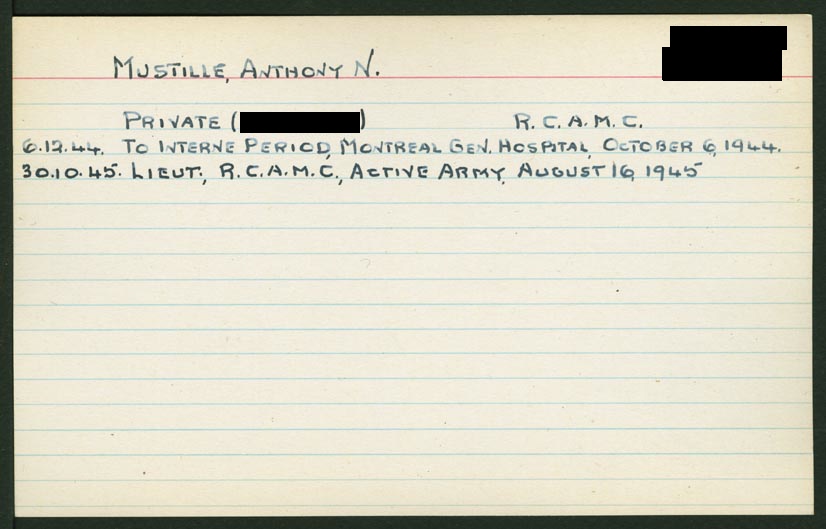 MUSTILLE, ANTHONY N.
PRIVATE ( ) R.C.A.M.C.
6.12.44. TO INTERNE PERIOD, MONTREAL GEN. HOSPITAL, OCTOBER 6, 1944.
30.10.45. LIEUT., R.C.A.M.C., ACTIVE ARMY, AUGUST 16, 1945